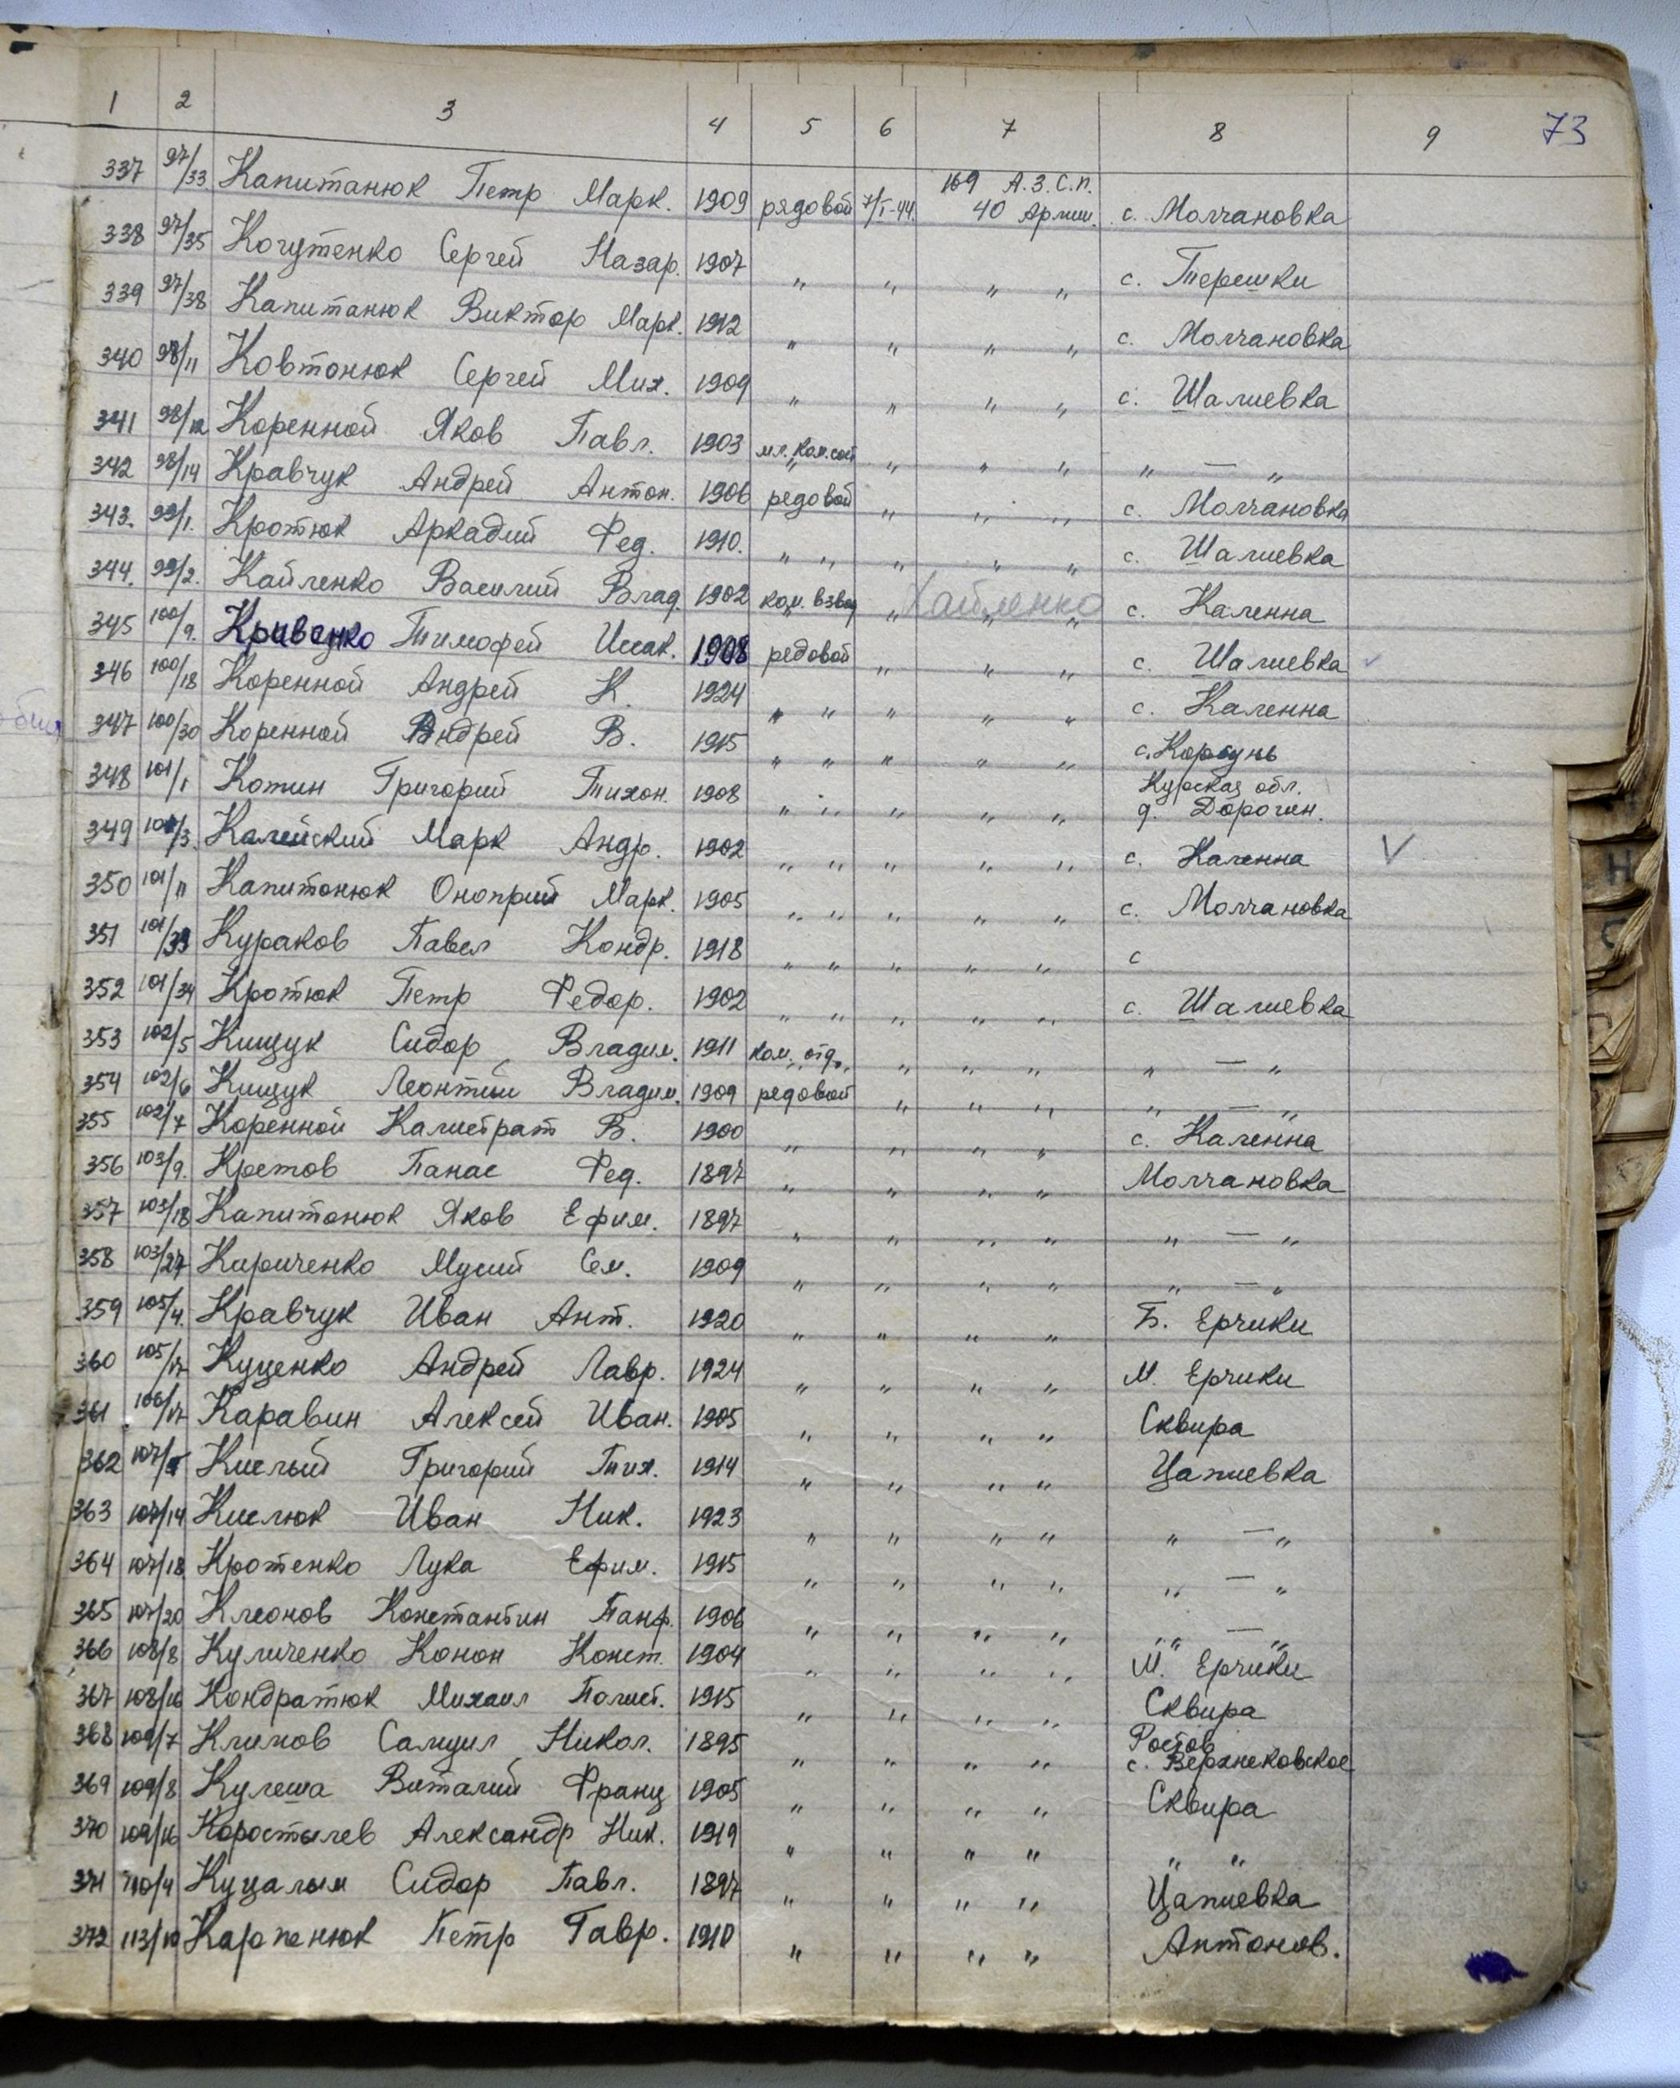 73
1 2 3 4 5 6 7 8 9
337 97/33 Капитанюк Петр Марк. 1909 рядовой 7/I-44. 169 А.З.С.П. 40 Армии. с. Молчановка
338 97/35 Когутенко Сергей Назар. 1907 " " " " с. Терешки
339 97/38 Капитанюк Виктор Марк. 1912 " " " " с. Молчановка
340 98/11 Ковтонюк Сергей Мих. 1909 " " " " с. Шалиевка
341 98/12 Коренной Яков Павл. 1903 мл. ком. сост " " " " — "
342 98/14 Кравчук Андрей Антон. 1906 редовой " " " с. Молчановка
343. 99/1. Кротюк Аркадий Фед. 1910. " " " " " с. Шалиевка
344. 99/2. Кайленко Василий Влад. 1902 ком. взвод " Хайленко " с. Каленна
345 100/9. Кривенко Тимофей Исак. 1908 редовой " " " с. Шалиевка ✓
346 100/18 Коренной Андрей К. 1924 " " " " " с. Каленна
347 100/30 Коренной Андрей В. 1915 " " " " " с. Корсунь
348 101/1 Котин Григорий Тихон. 1908 " " " " " Курская обл. д. Дорогин.
349 101/3. Калейский Марк Андр. 1902 " " " " " с. Каленна V
350 101/11 Капитонюк Оноприй Марк. 1905 " " " " " с. Молчановка
351 101/33 Кураков Павел Кондр. 1918 " " " " " с
352 101/34 Кротюк Петр Федор. 1902 " " " " " с. Шалиевка
353 102/5 Кищук Сидор Владим. 1911 ком. отд. " " " " — "
354 102/6 Кищук Леонтий Владим. 1909 редовой " " " " — "
355 102/7 Коренной Калистрат В. 1900 " " " " с. Каленна
356 103/9. Кретов Панас Фед. 1897 " " " " Молчановка
357 103/18 Капитонюк Яков Ефим. 1897 " " " " " — "
358 103/27 Кириченко Мусий Сем. 1909 " " " " " — "
359 105/4. Кравчук Иван Ант. 1920 " " " " Б. Ерчики
360 105/17 Куценко Андрей Лавр. 1924 " " " " М. Ерчики
361 106/17 Каравин Алексей Иван. 1905 " " " " Сквира
362 107/ Кислый Григорий Тих. 1914 " " " " Цапиевка
363 107/14 Кислюк Иван Ник. 1923 " " " " " — "
364 107/18 Кротенко Лука Ефим. 1915 " " " " " — "
365 107/20 Клеонов Константин Панф. 1906 " " " " " — "
366 108/8 Куличенко Конон Конст. 1904 " " " " М. Ерчики
367 108/16 Кондратюк Михаил Полист. 1915 " " " " Сквира
368 109/7 Климов Самуил Никол. 1895 " " " " Ростов с. Верхнековское
369 109/8 Кулеша Виталий Франц 1905 " " " " Сквира
370 109/16 Коростылев Александр Ник. 1919 " " " " " "
371 110/4 Куцалым Сидор Павл. 1897 " " " " Цапиевка
372 113/10 Карпенюк Петр Гавр. 1910 " " " " Антонов.
Н
С